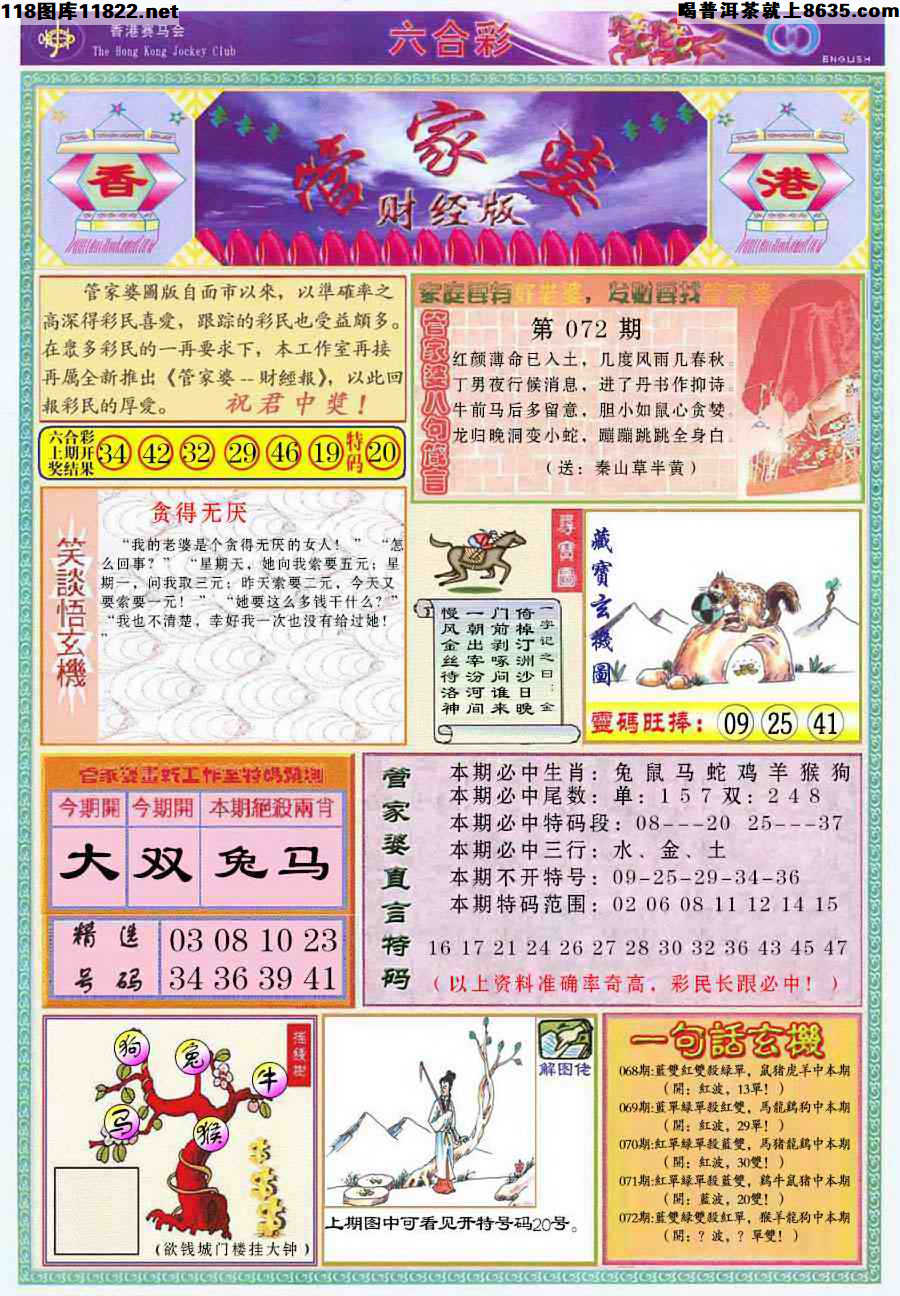 118图库11822.net
喝普洱茶就上8635.com
香港赛马会
The Hong Kong Jockey Club
六合彩
ENGLISH
香
管家婆
财经版
港
管家婆圖版自面市以來，以準確率之
高深得彩民喜愛，跟踪的彩民也受益頗多。
在衆多彩民的一再要求下，本工作室再接
再厲全新推出《管家婆--財經報》，以此回
報彩民的厚愛。 祝君中獎！
六合彩
上期开
奖结果
34 42 32 29 46 19 特码 20
家庭要有好老婆，发财要找管家婆
管家婆八句箴言
第 072 期
红颜薄命已入土，几度风雨几春秋。
丁男夜行候消息，进了丹书作抑诗。
牛前马后多留意，胆小如鼠心贪婪。
龙归晚洞变小蛇，蹦蹦跳跳全身白。
（送：秦山草半黄）
笑談悟玄機
贪得无厌
“我的老婆是个贪得无厌的女人！” “怎
么回事？” “星期天，她向我索要五元；星
期一，问我取三元；昨天索要二元，今天又
要索要一元！” “她要这么多钱干什么？”
“我也不清楚，幸好我一次也没有给过她！
”
尋寶圖
一字记之曰：金
倚棹汀洲沙日晚
门前剥啄问谁来
一朝出宰汾河间
慢风金丝待洛神
藏寶玄機圖
靈碼旺捧：09 25 41
管家婆最新工作室特碼預測
今期開 今期開 本期絕殺兩肖
大 双 兔马
精选
号码
03 08 10 23
34 36 39 41
管家婆直言特码
本期必中生肖：兔 鼠 马 蛇 鸡 羊 猴 狗
本期必中尾数：单：1 5 7 双：2 4 8
本期必中特码段：08---20 25---37
本期必中三行：水、金、土
本期不开特号：09-25-29-34-36
本期特码范围：02 06 08 11 12 14 15
16 17 21 24 26 27 28 30 32 36 43 45 47
（以上资料准确率奇高，彩民长跟必中！）
摇錢樹
狗
兔
牛
马
猴
（欲钱城门楼挂大钟）
解图佬
上期图中可看见开特号码20号。
一句話玄機
068期:藍雙紅雙殺綠單，鼠猪虎羊中本期
（開：紅波，13單！）
069期:藍單綠單殺紅雙，馬龍鷄狗中本期
（開：紅波，29單！）
070期:紅單綠單殺藍雙，馬猪龍鷄中本期
（開：紅波，30雙！）
071期:紅單綠單殺藍雙，鷄牛鼠猪中本期
（開：藍波，20雙！）
072期:藍雙綠雙殺紅單，猴羊龍狗中本期
（開：？波，？單雙！）